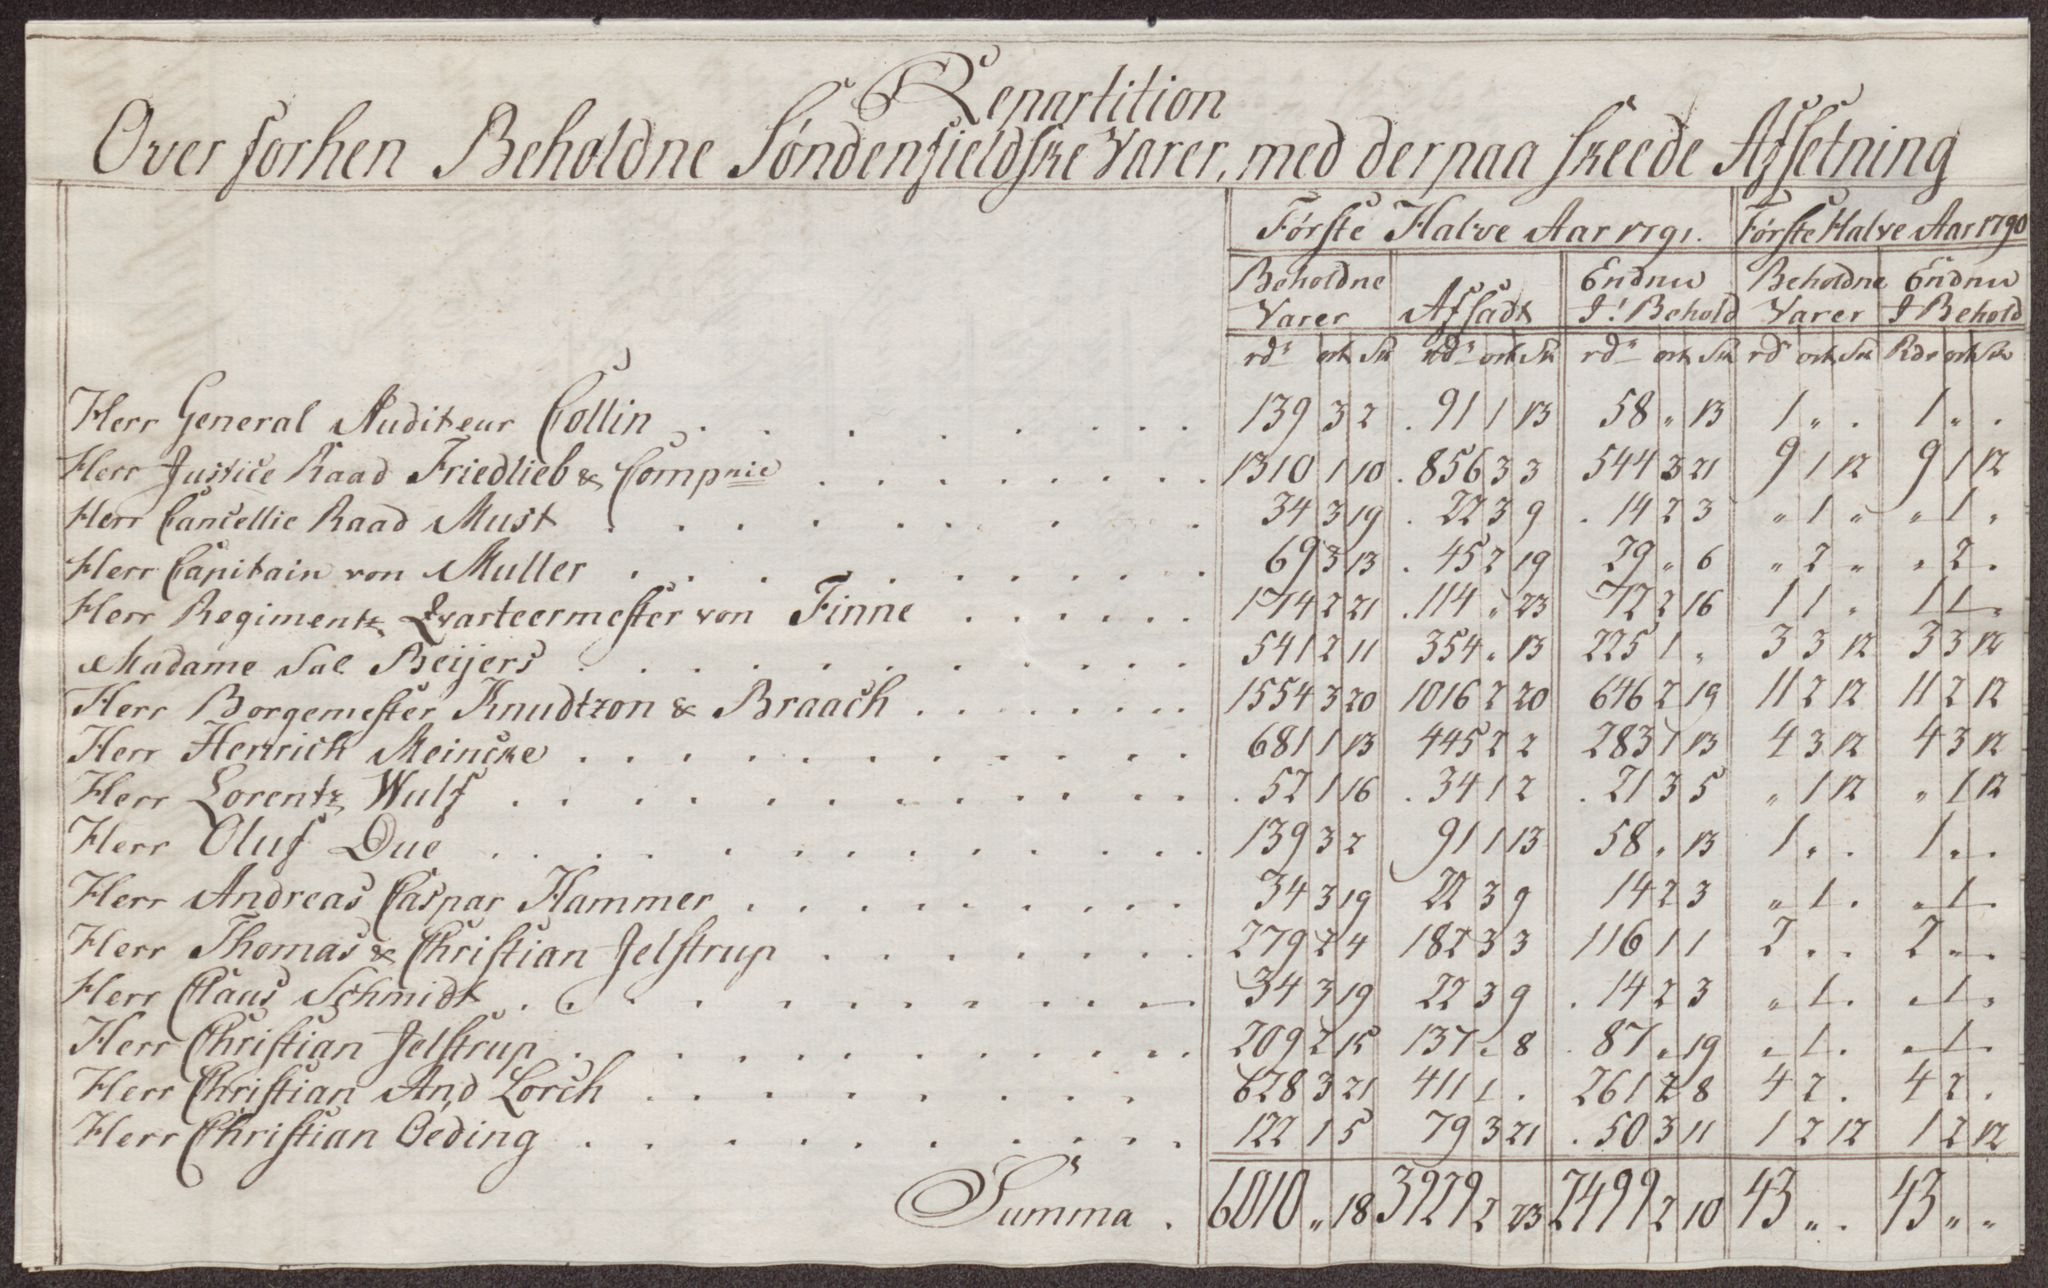 Repartition
Over forhen Beholdne Søndenfieldske Varer, med derpaa skeede Afsetning
Første Halve Aar 1791. Første Halve Aar 1790
Beholdne Varer Afsadt Endnu I: Behold Beholdne Varer Endnu I Behold
rdr ort Sk rdr ort Sk rdr ort Sk rdr ort Sk Rdr ort Sk
Herr General Auditeur Collin . . . . . . . . 139 3 2 . 91 1 13 58 " 13 1 " . 1 " .
Herr Justice Raad Friedlieb & Compnie . . . . . . . . 1310 1 10 . 856 3 3 544 3 21 9 1 12 9 1 12
Herr Cancellie Raad Must . . . . . . . . 34 3 19 . 22 3 9 . 14 2 3 " 1 " " 1 "
Herr Capitain von Muller . . . . . . . . 69 3 13 . 45 2 19 29 " 6 " 2 " " 2 .
Herr Regimentz Qvarteermester von Finne . . . . . . 174 2 21 . 114 " 23 72 2 16 1 1 " 1 1 "
Madame Sal Beijers . . . . . . . . 541 2 11 354 " 13 225 1 " 3 3 12 3 3 12
Herr Borgemester Knudtzon & Braach . . . . . . . . 1554 3 20 1016 2 20 646 2 19 11 2 12 11 2 12
Herr Henrich Meincke . . . . . . . . 681 1 13 445 2 2 283 1 13 4 3 12 4 3 12
Herr Lorentz Wulf . . . . . . . . . 52 1 16 . 34 1 2 . 21 3 5 " 1 12 " 1 12
Herr Oluf Due . . . . . . . . 139 3 2 91 1 13 58 " 13 1 " . 1 " .
Herr Andreas Caspar Hammer . . . . . . . . 34 3 19 22 3 9 14 2 3 " 1 . " 1 .
Herr Thomas & Christian Jelstrup . . . . . . . 279 2 4 182 3 3 116 1 1 2 " . 2 " .
Herr Claus Schmidt . . . . . . . . 34 3 19 22 3 9 . 14 2 3 " 1 . " 1 "
Herr Christian Jelstrup . . . . . . . . 209 2 15 137 " 8 . 87 " 19 " 1 . " 1 .
Herr Christian And Lorch . . . . . . . . 628 3 21 411 1 . 261 2 8 4 2 . 4 2 .
Herr Christian Oeding . . . . . . . . 122 1 5 79 3 21 . 50 3 11 1 2 12 1 2 12
Summa . 6010 " 18 3929 2 23 2499 2 10 43 " . 43 " "